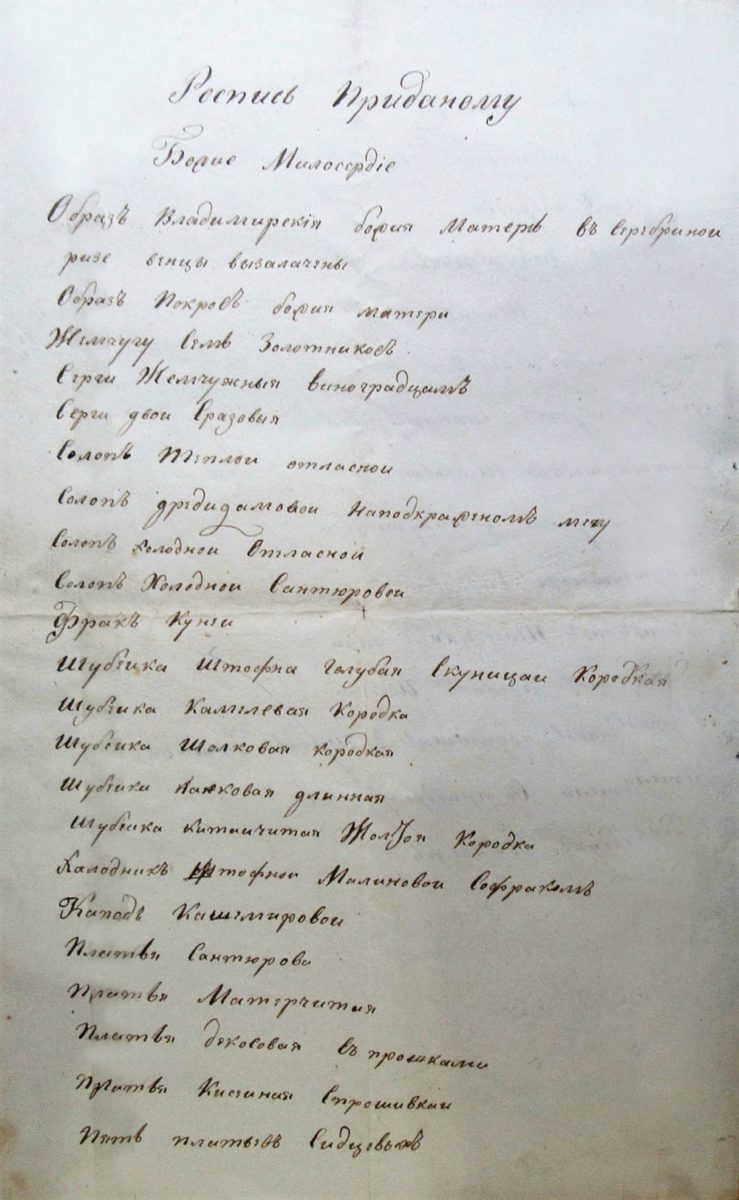 Роспись Приданому
Божие Милосердiе
Образъ Владимирскiя божия Матерь въ серебринои
ризе венцы вызалачены
Образъ Покровъ божия матери
Жемчугу Семь Золотниковъ
Серги Жемчужныя виноградцамъ
Серги двои Сразовыя
Солопъ Теплои отласнои
Солопъ дредидамовои Наподкраженомъ меху
Солопъ холоднои Отласнои
Солопъ Холоднои Сантюровои
Фракъ Кунеи
Шубеика Штофна голубая Скуницаи Короткая
Шубеика Камлевая Коротка
Шубеика Шолковая короткая
Шубеика Нанковая длинная
Шубеика китаичитая Жолтоя Коротка
Халодникъ Штофнои Малиновои Софракомъ
Капотъ Кашемировои
Платья Сантюрово
Платья Матерчитая
Платья декосовая въ прошками
Платья Кисиная Спрошивкаи
Пять платьевъ Ситцевыхъ